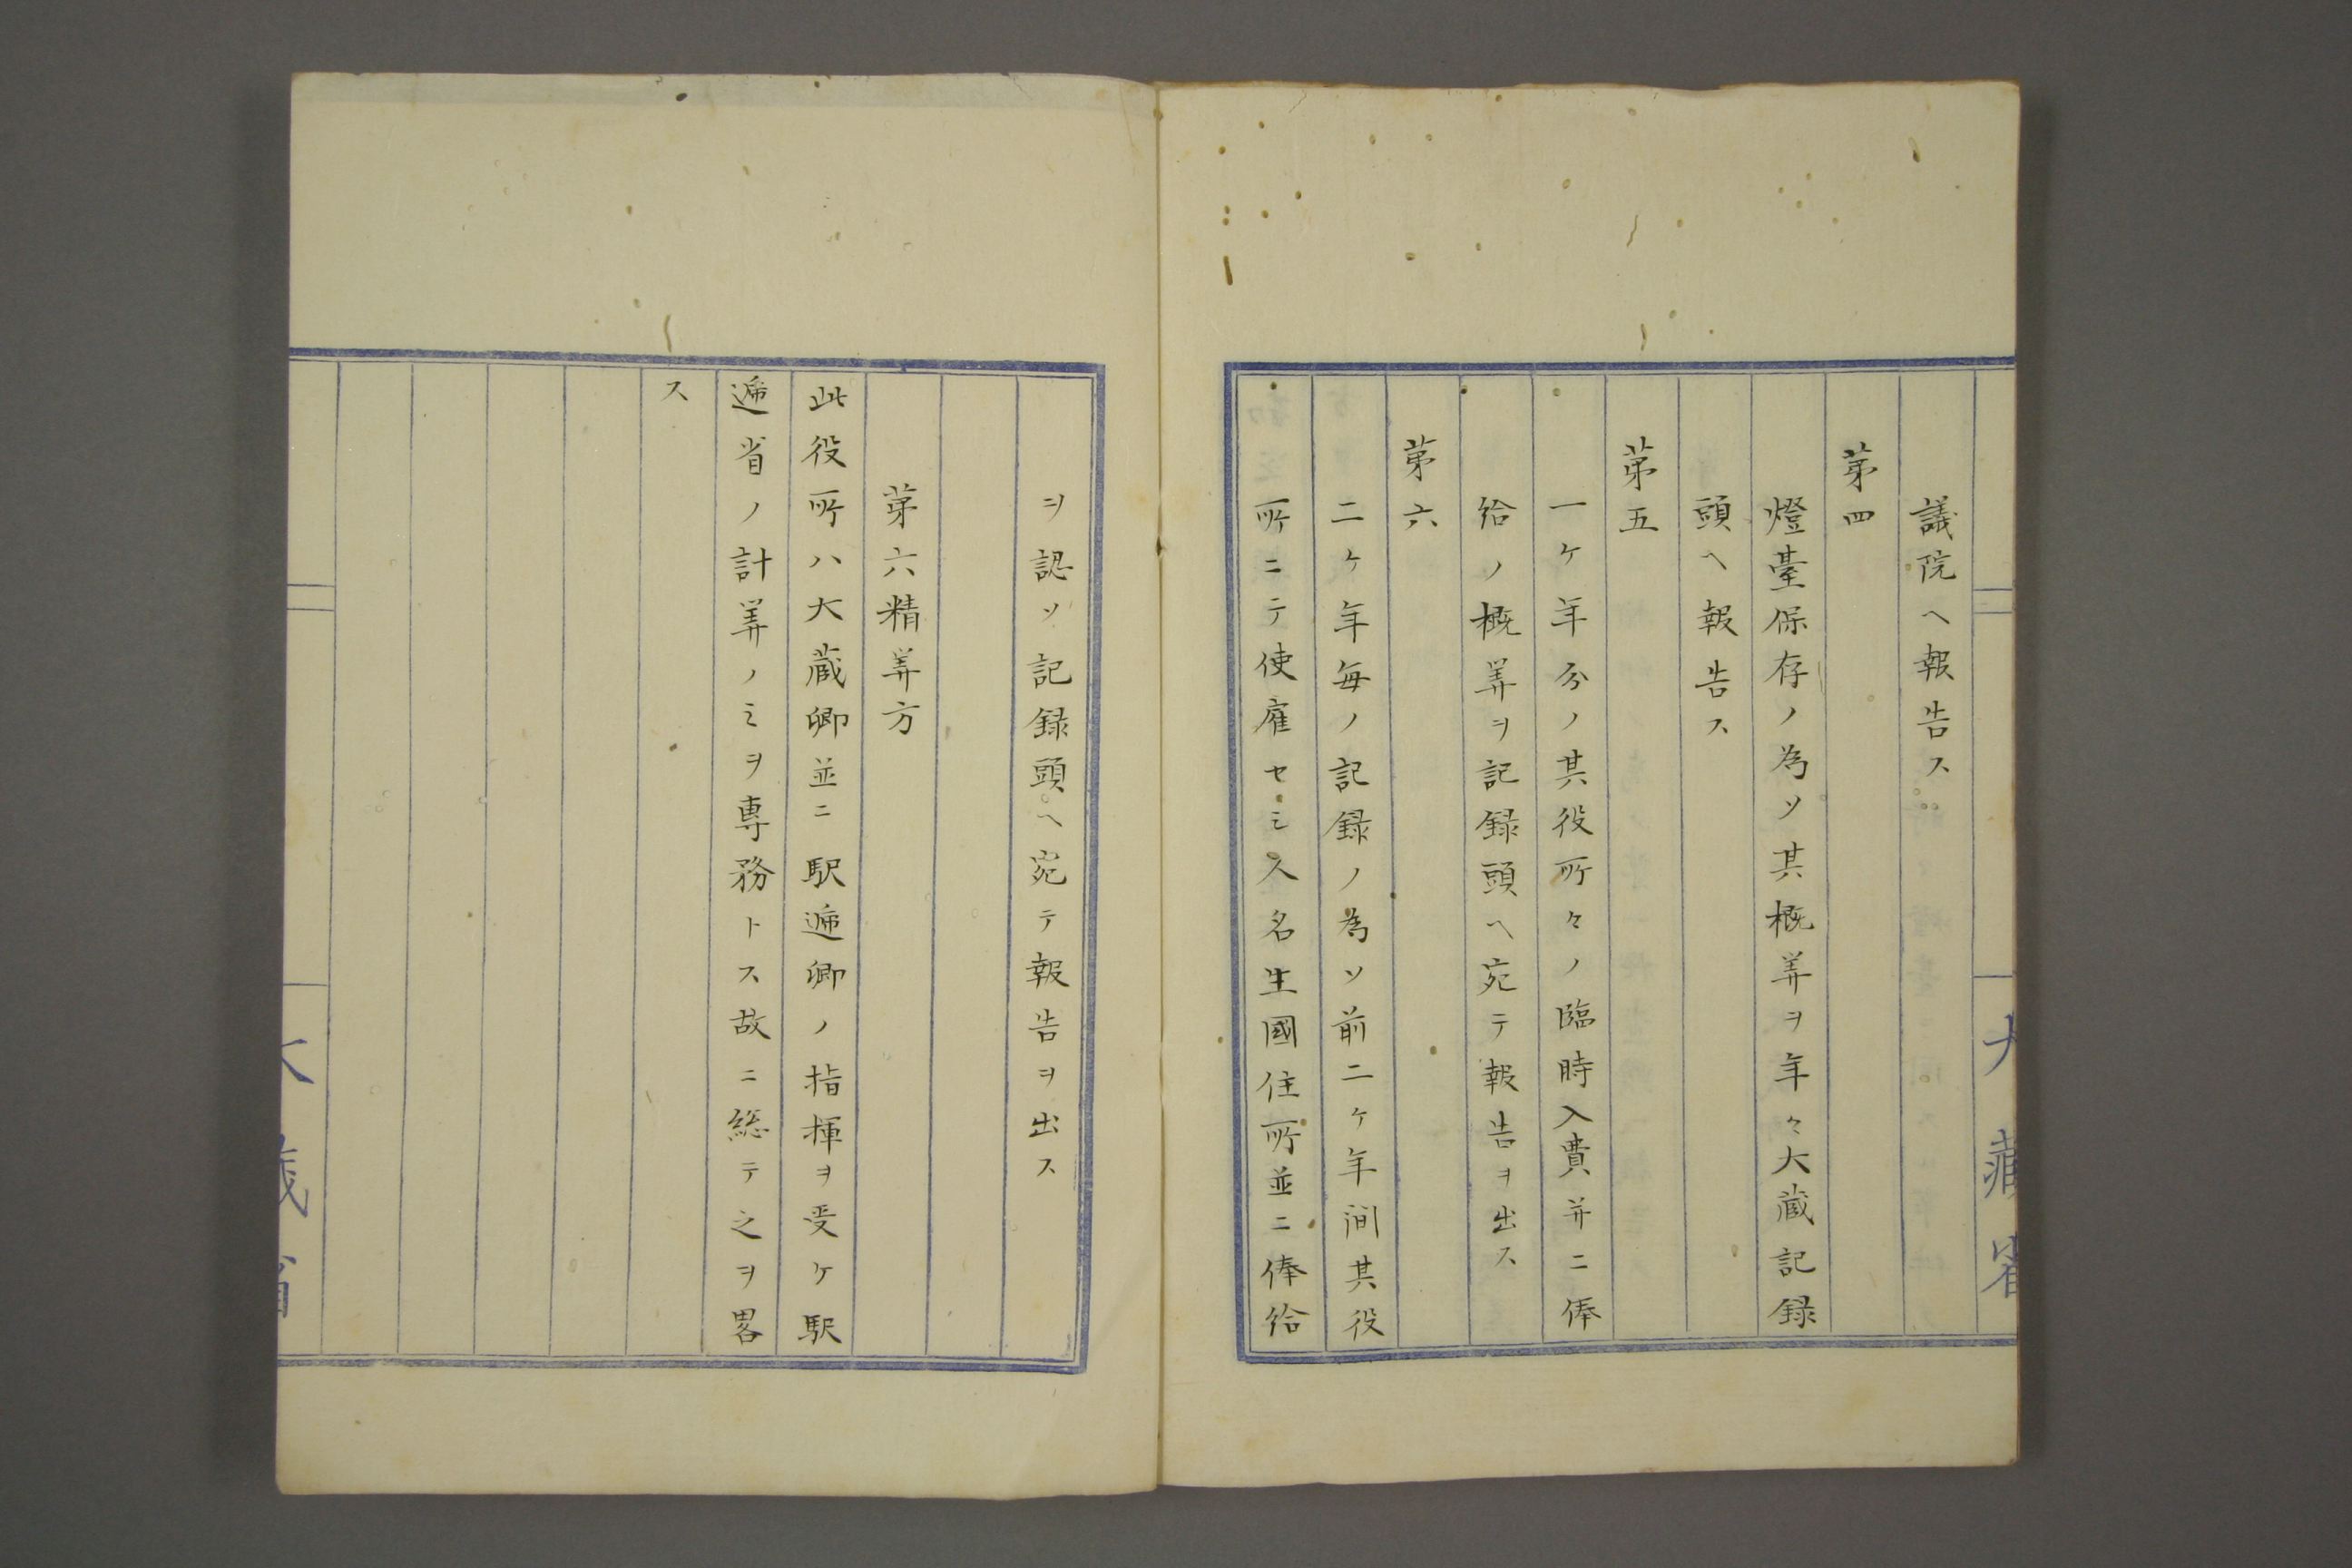 議院ヘ報告ス
第四
燈臺保存ノ為ソ其概筭ヲ年々大蔵記録
頭ヘ報告ス
第五
一ケ年分ノ其役所々ノ臨時入費并ニ俸
給ノ概筭ヲ記録頭ヘ宛テ報告ヲ出ス
第六
二ケ年毎ノ記録ノ為ソ前二ケ年間其役
所ニテ使雇セシ人名生國住所並ニ俸給
ヲ認ソ記録頭ヘ宛テ報告ヲ出ス
第六精筭方
此役所ハ大蔵卿並ニ駅逓卿ノ指揮ヲ受ケ駅
逓省ノ計筭ノミヲ専務トス故ニ総テ之ヲ畧
ス
大藏省
大藏省